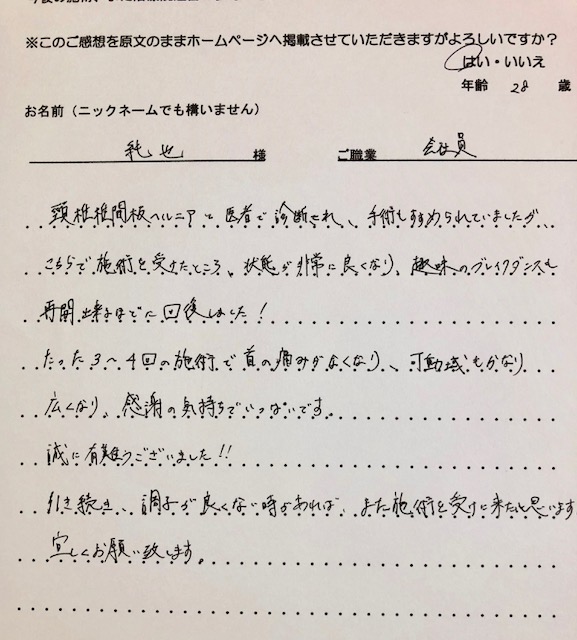 ※このご感想を原文のままホームページへ掲載させていただきますがよろしいですか？
はい・いいえ
年齢 28 歳
お名前（ニックネームでも構いません）
純也 様 ご職業 会社員
頸椎椎間板ヘルニアと医者で診断され、手術もすすめられていましたが、
こちらで施術を受けたところ、状態が非常に良くなり、趣味のブレイクダンスも
再開出来るほどに回復しました！
たった3〜4回の施術で首の痛みがなくなり、可動域もかなり
広くなり、感謝の気持ちでいっぱいです。
誠に有難うございました!!
引き続き、調子が良くない時があれば、また施術を受けに来たいと思います
宜しくお願い致します。